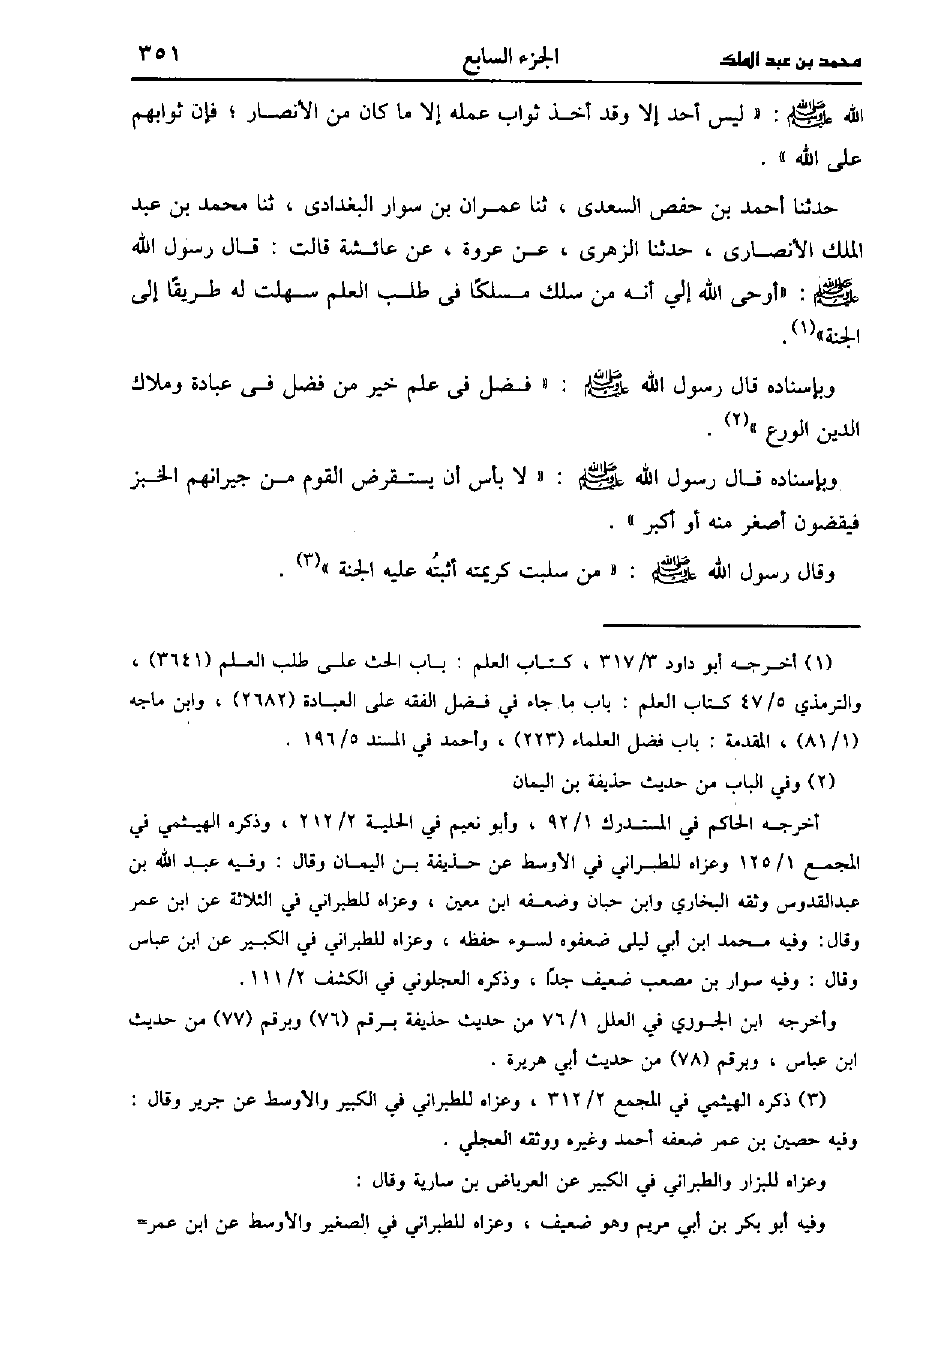 محمد بن عبد الملك الجزء السابع ٣٥١
الله ﷺ : « ليس أحد إلا وقد أخذ ثواب عمله إلا ما كان من الأنصار ؛ فإن ثوابهم
على الله » .
حدثنا أحمد بن حفص السعدى ، ثنا عمران بن سوار البغدادى ، ثنا محمد بن عبد
الملك الأنصارى ، حدثنا الزهرى ، عن عروة ، عن عائشة قالت : قال رسول الله
ﷺ : «أوحى الله إلي أنه من سلك مسلكًا فى طلب العلم سهلت له طريقًا إلى
الجنة»(١).
وبإسناده قال رسول الله ﷺ : « فضل فى علم خير من فضل فى عبادة وملاك
الدين الورع »(٢) .
وبإسناده قال رسول الله ﷺ : « لا بأس أن يستقرض القوم من جيرانهم الخبز
فيقضون أصغر منه أو أكبر » .
وقال رسول الله ﷺ : « من سلبت كريمته أثبتُه عليه الجنة »(٣) .
(١) أخرجه أبو داود ٣١٧/٣ ، كتاب العلم : باب الحث على طلب العلم (٣٦٤١) ،
والترمذي ٤٧/٥ كتاب العلم : باب ما جاء في فضل الفقه على العبادة (٢٦٨٢) ، وابن ماجه
(٨١/١) ، المقدمة : باب فضل العلماء (٢٢٣) ، وأحمد في المسند ١٩٦/٥ .
(٢) وفي الباب من حديث حذيفة بن اليمان
أخرجه الحاكم في المستدرك ٩٢/١ ، وأبو نعيم في الحلية ٢١٢/٢ ، وذكره الهيثمي في
المجمع ١٢٥/١ وعزاه للطبراني في الأوسط عن حذيفة بن اليمان وقال : وفيه عبد الله بن
عبدالقدوس وثقه البخاري وابن حبان وضعفه ابن معين ، وعزاه للطبراني في الثلاثة عن ابن عمر
وقال: وفيه محمد ابن أبي ليلى ضعفوه لسوء حفظه ، وعزاه للطبراني في الكبير عن ابن عباس
وقال : وفيه سوار بن مصعب ضعيف جدًا ، وذكره العجلوني في الكشف ١١١/٢.
وأخرجه ابن الجوري في العلل ٧٦/١ من حديث حذيفة برقم (٧٦) وبرقم (٧٧) من حديث
ابن عباس ، وبرقم (٧٨) من حديث أبي هريرة .
(٣) ذكره الهيثمي في المجمع ٣١٢/٢ ، وعزاه للطبراني في الكبير والأوسط عن جرير وقال :
وفيه حصين بن عمر ضعفه أحمد وغيره ووثقه العجلي .
وعزاه للبزار والطبراني في الكبير عن العرباض بن سارية وقال :
وفيه أبو بكر بن أبي مريم وهو ضعيف ، وعزاه للطبراني في الصغير والأوسط عن ابن عمر=